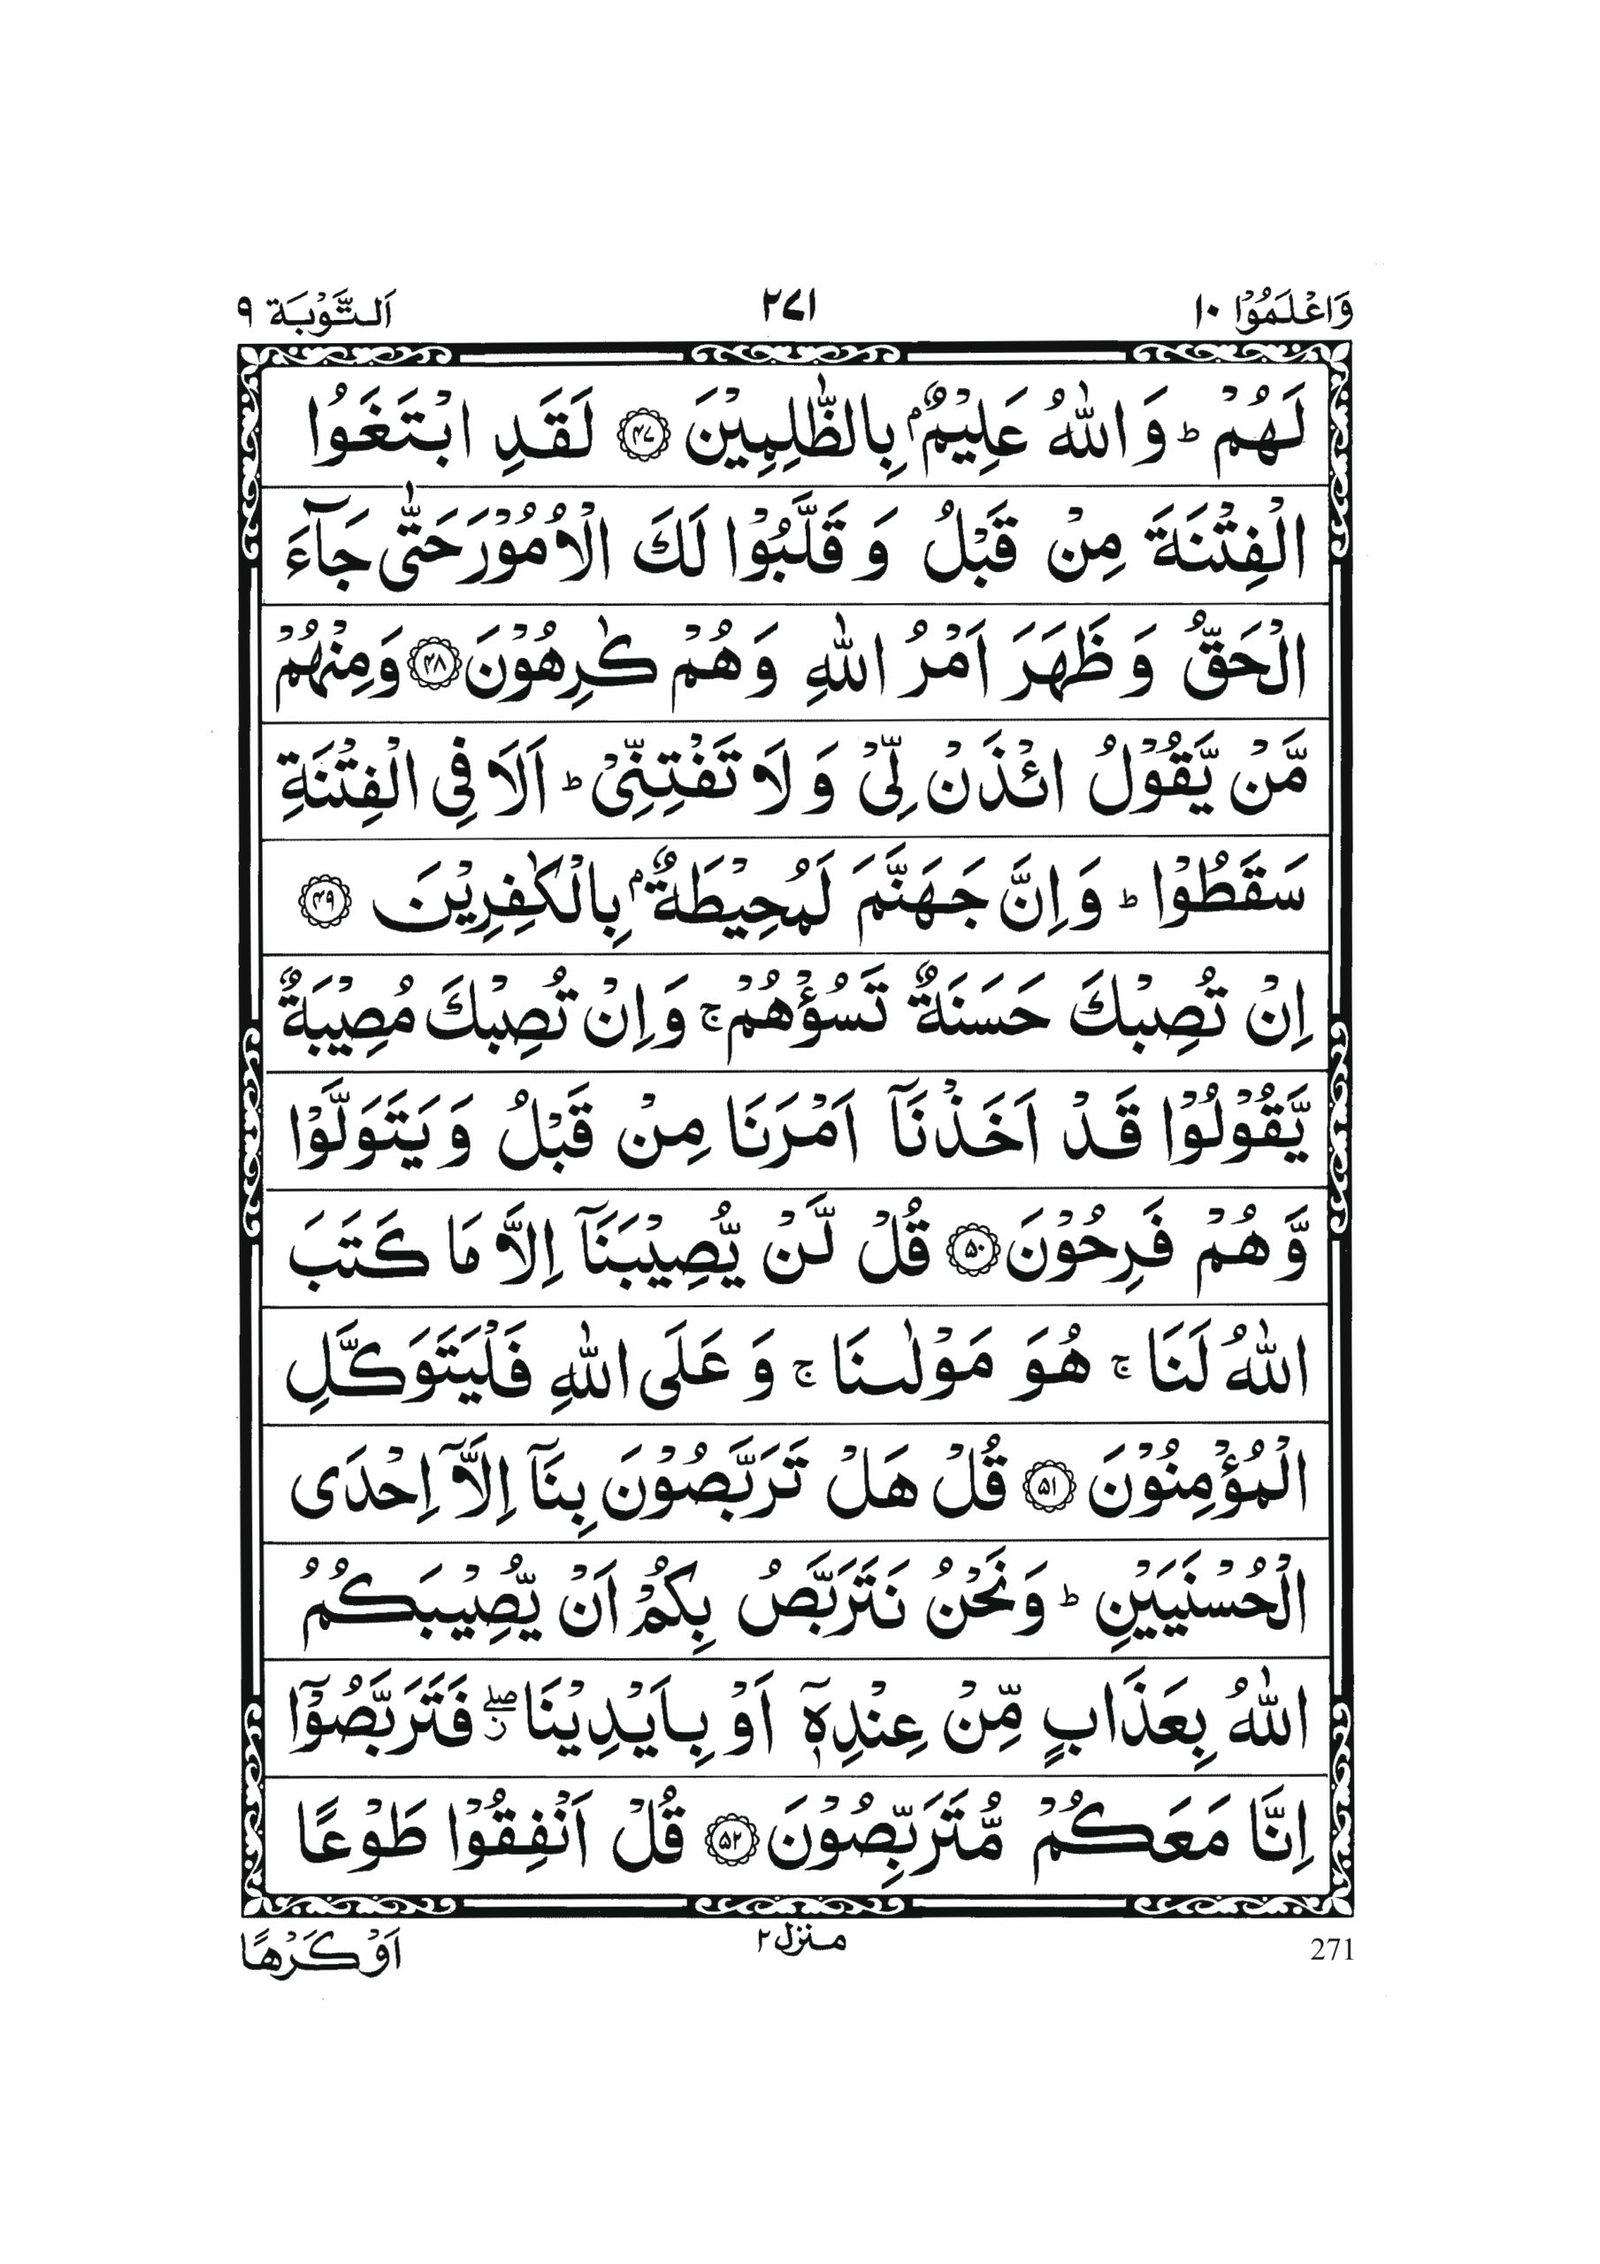 وَاعْلَمُوْۤا ۱۰
۲۷۱
اَلتَّوْبَة ۹
لَهُمْ ؕ وَ اللّٰهُ عَلِیْمٌۢ بِالظّٰلِمِیْنَ ﴿۴۷﴾ لَقَدِ ابْتَغَوُا
الْفِتْنَةَ مِنْ قَبْلُ وَ قَلَّبُوْا لَكَ الْاُمُوْرَ حَتّٰی جَآءَ
الْحَقُّ وَ ظَهَرَ اَمْرُ اللّٰهِ وَ هُمْ كٰرِهُوْنَ ﴿۴۸﴾ وَ مِنْهُمْ
مَّنْ یَّقُوْلُ ائْذَنْ لِّیْ وَ لَا تَفْتِنِّیْ ؕ اَلَا فِی الْفِتْنَةِ
سَقَطُوْا ؕ وَ اِنَّ جَهَنَّمَ لَمُحِیْطَةٌۢ بِالْكٰفِرِیْنَ ﴿۴۹﴾
اِنْ تُصِبْكَ حَسَنَةٌ تَسُؤْهُمْ ۚ وَ اِنْ تُصِبْكَ مُصِیْبَةٌ
یَّقُوْلُوْا قَدْ اَخَذْنَاۤ اَمْرَنَا مِنْ قَبْلُ وَ یَتَوَلَّوْا
وَّ هُمْ فَرِحُوْنَ ﴿۵۰﴾ قُلْ لَّنْ یُّصِیْبَنَاۤ اِلَّا مَا كَتَبَ
اللّٰهُ لَنَا ۚ هُوَ مَوْلٰىنَا ۚ وَ عَلَی اللّٰهِ فَلْیَتَوَكَّلِ
الْمُؤْمِنُوْنَ ﴿۵۱﴾ قُلْ هَلْ تَرَبَّصُوْنَ بِنَاۤ اِلَّاۤ اِحْدَی
الْحُسْنَیَیْنِ ؕ وَ نَحْنُ نَتَرَبَّصُ بِكُمْ اَنْ یُّصِیْبَكُمُ
اللّٰهُ بِعَذَابٍ مِّنْ عِنْدِهٖۤ اَوْ بِاَیْدِیْنَا ۖ٘ فَتَرَبَّصُوْۤا
اِنَّا مَعَكُمْ مُّتَرَبِّصُوْنَ ﴿۵۲﴾ قُلْ اَنْفِقُوْا طَوْعًا
271
منزل ۲
اَوْ كَرْهًا